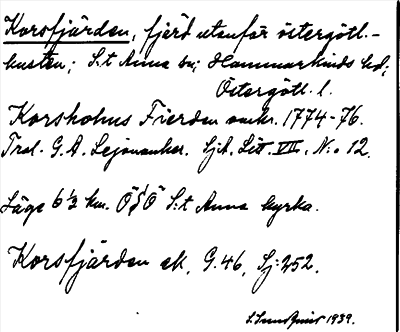 Korsfjärden, fjärd utanför östergötl.-
kusten; S:t Anna sn; Hammarkinds hd;
Östergötl. l.
Korsholms Fierden omkr. 1774-76.
Trol. G. A. Lejonanker. Sj.A. Litt. VII, N:o 12.
Läge 6 1/2 km. ÖSÖ S:t Anna kyrka.
Korsfjärden ek, G. 46, Sj: 252.
S. Lundquist 1939.